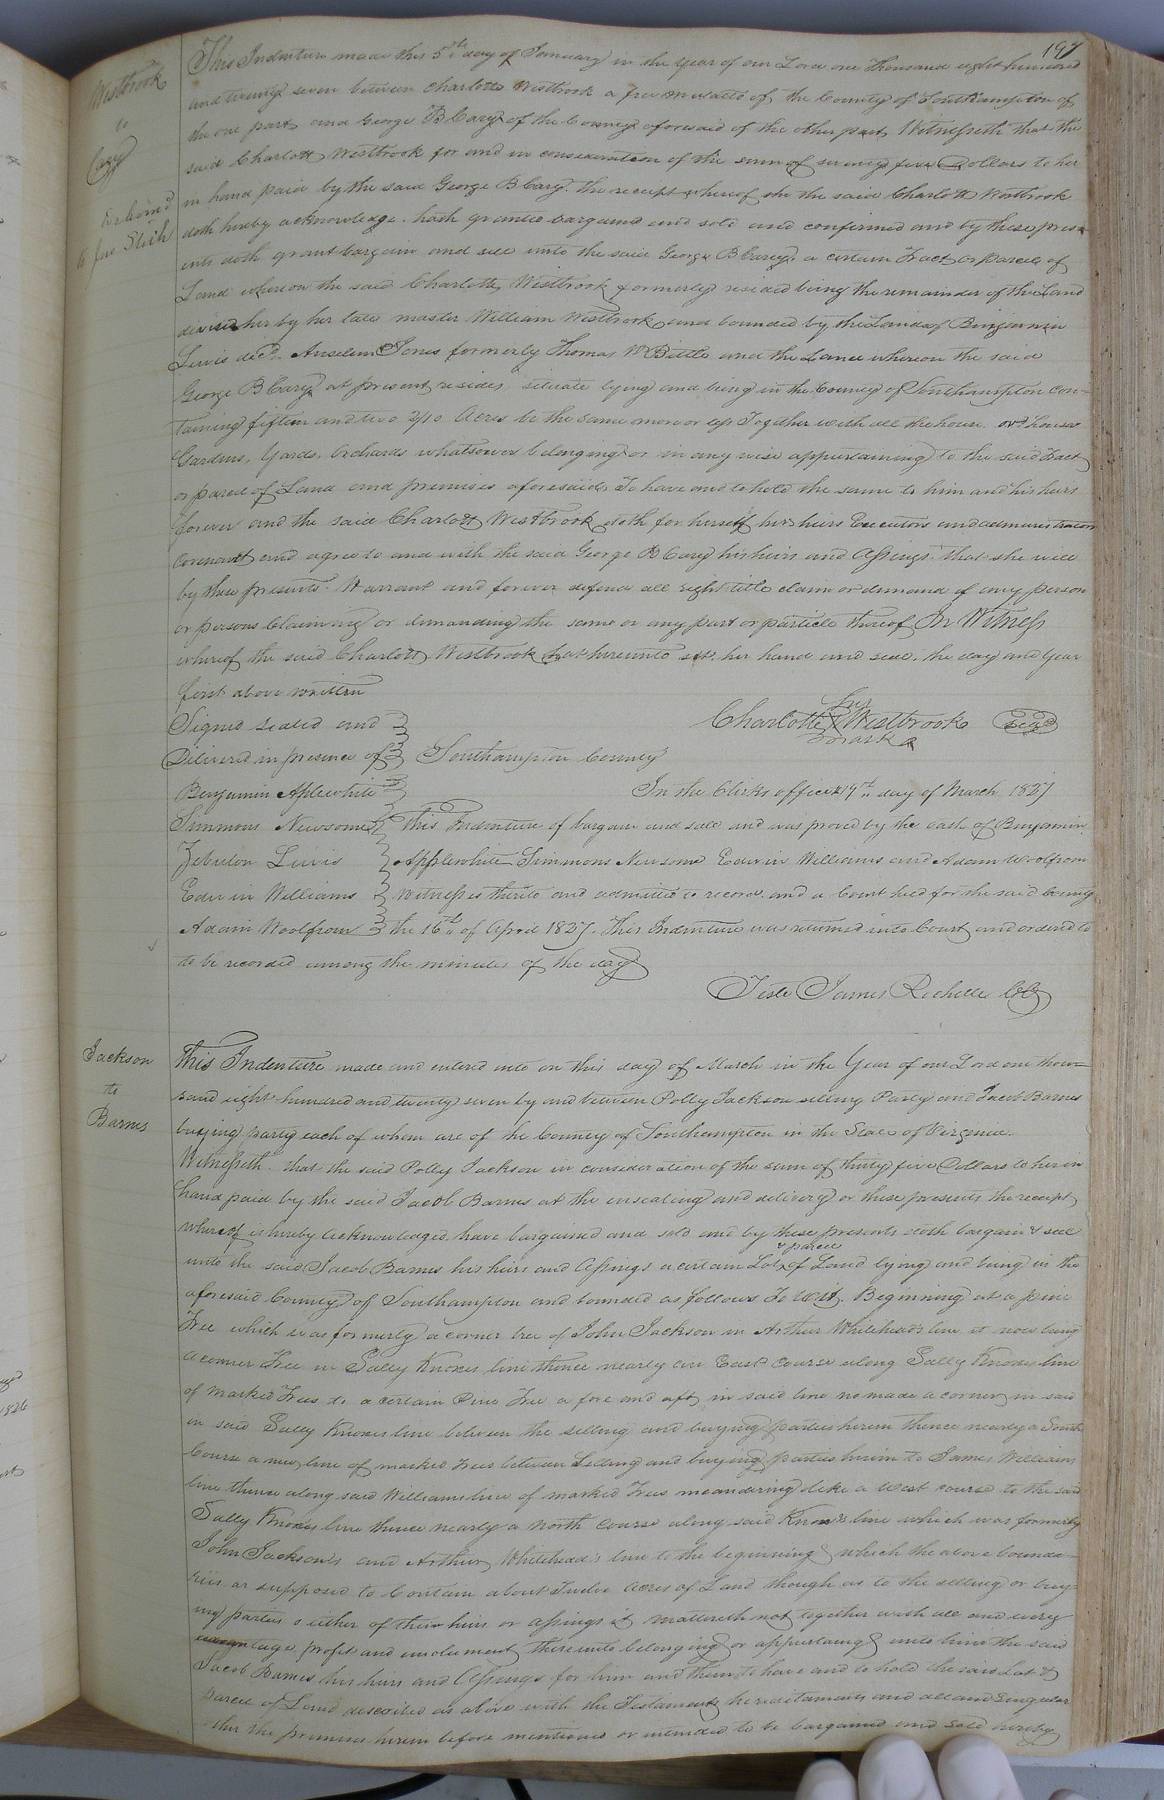 197
Westbrook
to
Cary
Deliver'd
to Jno
This Indenture made this 5th day of January in the year of our Lord one thousand eight hundred
and twenty seven between Charlotte Westbrook a free mulatto of the County of Southampton of
the one part and George B Cary of the County aforesaid of the other part Witnesseth that the
said Charlott Westbrook for and in consideration of the sum of seventy five Dollars to her
in hand paid by the said George B Cary. the receipt whereof she the said Charlott Westbrook
doth hereby acknowledge. hath granted bargained and sold and confirmed and by these pres
ents doth grant bargain and sell unto the said George B Cary, a certain Tract or parcel of
Land whereon the said Charlotte Westbrook formerly resided being the remainder of the Land
devised her by her late master William Westbrook and bounded by the Lands of Benjamin
Lewis decd. Anselem Jones formerly Thomas W Bittle and the Land whereon the said
George B Cary at present resides situate lying and being in the County of Southampton con-
taining fifteen and two 2/10 Acres be the same more or less Together with all the house
Gardens, Yards, Orchards whatsoever belonging or in any wise appertaining to the said Tract
or parcel of Land and premises aforesaid, To have and to hold the same to him and his heirs
forever and the said Charlott Westbrook doth for herself her heirs Executors and administrators
Covenant and agree to and with the said George B Cary his heirs and Assings that she will
by these presents. Warrant and forever defend all right title claim or demand of any person
or persons Claiming or demanding the same or any part or particle thereof In Witness
whereof the said Charlott Westbrook hath hereunto set her hand and seal, the day and Year
first above written
Signed sealed and
her
Charlotte X Westbrook Seal
mark
Delivered in presence of Southampton County
Benjamin Aplewhite In the Clerks office 19th day of March 1827
Simmons Newsome This Indenture of bargain and sale and was proved by the oath of Benjamin
Zebulon Lewis Applewhite Simmons Newsome Edwin Williams and Adam Woolfrom
Edwin Williams Witnesses thereto and admitted to record. and a Court held for the said County
Adam Woolfrom the 16th of April 1827. This Indenture was returned into Court and ordered to
to be recorded among the minutes of the day
Teste James Rochelle
Jackson
to
Barnes
This Indenture made and entered into on this day of March in the Year of our Lord one thou-
sand eight hundred and twenty seven by and between Polly Jackson selling Party and Jacob Barnes
buying party each of whom are of he County of Southampton in the State of Virginia.
Witnesseth. that the said Polly Jackson in consideration of the sum of thirty five Dollars to her in
hand paid by the said Jacob Barnes at the insealing and delivery or these presents the receipt
whereof is hereby acknowledged, have bargained and sold and by these presents doth bargain & sell
& parcel
unto the said Jacob Barnes his heirs and Assings a certain Lot of Land lying and being in the
aforesaid County of Southampton and bounded as follows To Wit. Beginning at a pine
Tree which was formerly a corner tree of John Jackson in Arthur Whitehead's line it now being
a corner Tree in Sally Knoxes line thence nearly an East course along Sally Knoxes line
of marked Trees to a certain Pine Tree a fore and aft, in said line no made a corner in said
in said Sally Knoxes line between the selling and buying parties herein thence nearly a South
Course a new line of marked trees between Selling and buying parties herein to James Williams
line thence along said Williams line of marked Trees meandering like a West course to the said
Sally Knoxes line thence nearly a north course along said Knoxs line which was formerly
John Jackson's and Arthur Whitehead's line to the beginning which the above bounda-
ries are supposed to Contain about Twelve Acres of Land though as to the selling or buy-
ing parties o either of their heirs or assings it mattereth not together with all and every
profit and emolument thereunto belonging or appertaing unto him the said
Jacob Barnes his heirs and Assings for him and them to have and to hold the said Lot &
parcel of Land described as above with the Testaments hereditaments and all and Singular
ther the premises herein before mentioned or intended to be bargained and sold hereby